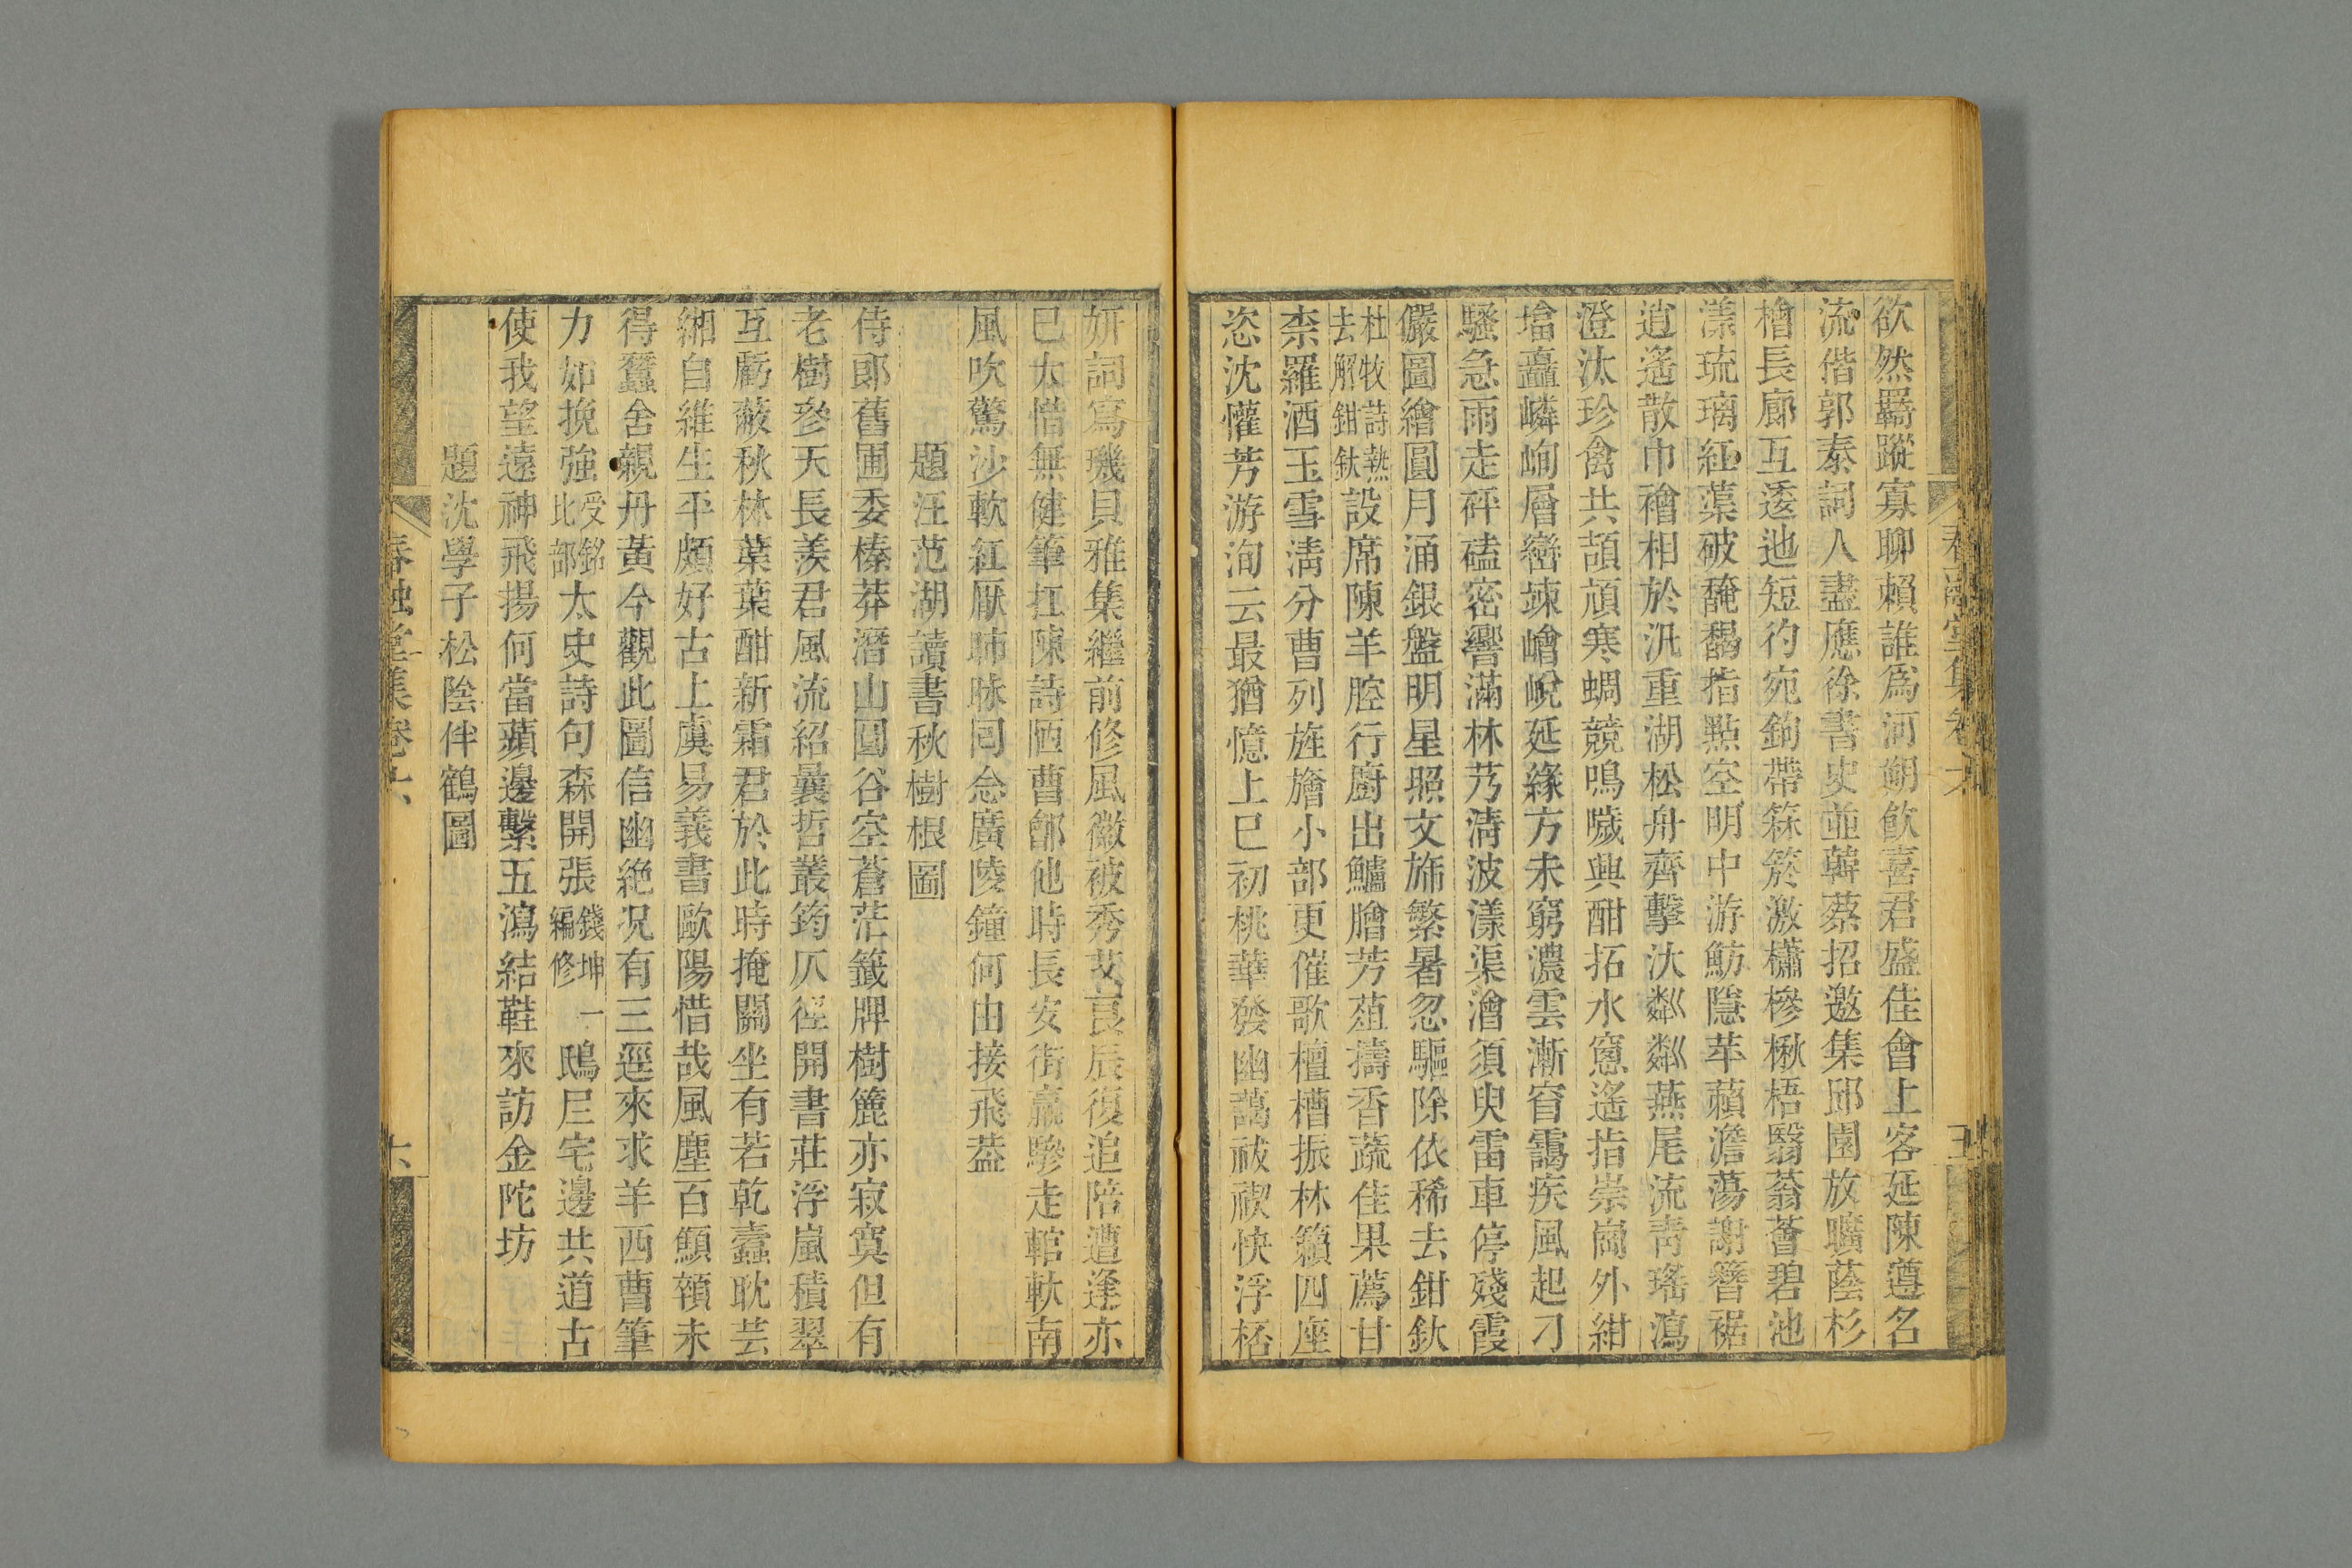 春融堂集卷六
欲然羇蹤寡聊賴誰爲河朔飲喜君盛佳會上客延陳遵名
流偕郭泰詞人盡應徐書史並韓蔡招邀集邱園放曠蔭杉
檜長廊互逶迆短彴宛鉤帶箖箊激櫹槮楸梧翳蓊薈碧池
漾琉璃紅蕖破醃馤指點空明中游魴隱苹藾澹蕩謝簪裾
逍遙散巾襘相於汎重湖松舟齊擊汏粼粼燕尾流靑瑤瀉
澄汰珍禽共頡頏寒蜩競鳴噦興酣拓水窻遙指崇崗外紺
墖矗嶙峋層巒竦嶒峴延緣方未窮濃雲漸窅靄疾風起刁
騷急雨走砰磕密響滿林艿淸波漾渠澮須臾雷車停殘霞
儼圖繪圓月涌銀盤明星照文斾繁暑忽驅除依稀去鉗釱
杜牧詩熱去解鉗釱設席陳羊腔行廚出鱸膾芳葅擣香蔬佳果薦甘
柰羅酒玉雪淸分曹列旌旝小部更催歌檀槽振林籟四座
恣沈懽芳游洵云最猶憶上巳初桃華發幽藹祓禊快浮桮
妍詞寫璣貝雅集繼前修風徽被秀艾良辰復追陪遭逢亦
已太惜無健筆扛陳詩陋曹鄶他時長安街羸驂走輨軑南
風吹驚沙軟紅厭肺昧囘念廣陵鐘何由接飛葢
題汪范湖讀書秋樹根圖
侍郎舊圃委榛莽潛山園谷空蒼茫籤牌樹簏亦寂寞但有
老樹參天長羨君風流紹曩哲叢筠仄徑開書莊浮嵐積翠
互虧蔽秋林葉葉酣新霜君於此時掩關坐有若乾蠹耽芸
緗自維生平頗好古上虞易義書歐陽惜哉風塵百顦顇未
得蠶舍親丹黃今觀此圖信幽絶况有三逕來求羊西曹筆
力如挽強受銘比部太史詩句森開張錢坤一編修鴟𡰥宅邊共道古
使我望遠神飛揚何當蘋邊繫五瀉結鞋來訪金陀坊
題沈學子松陰伴鶴圖
春融堂集卷六
六